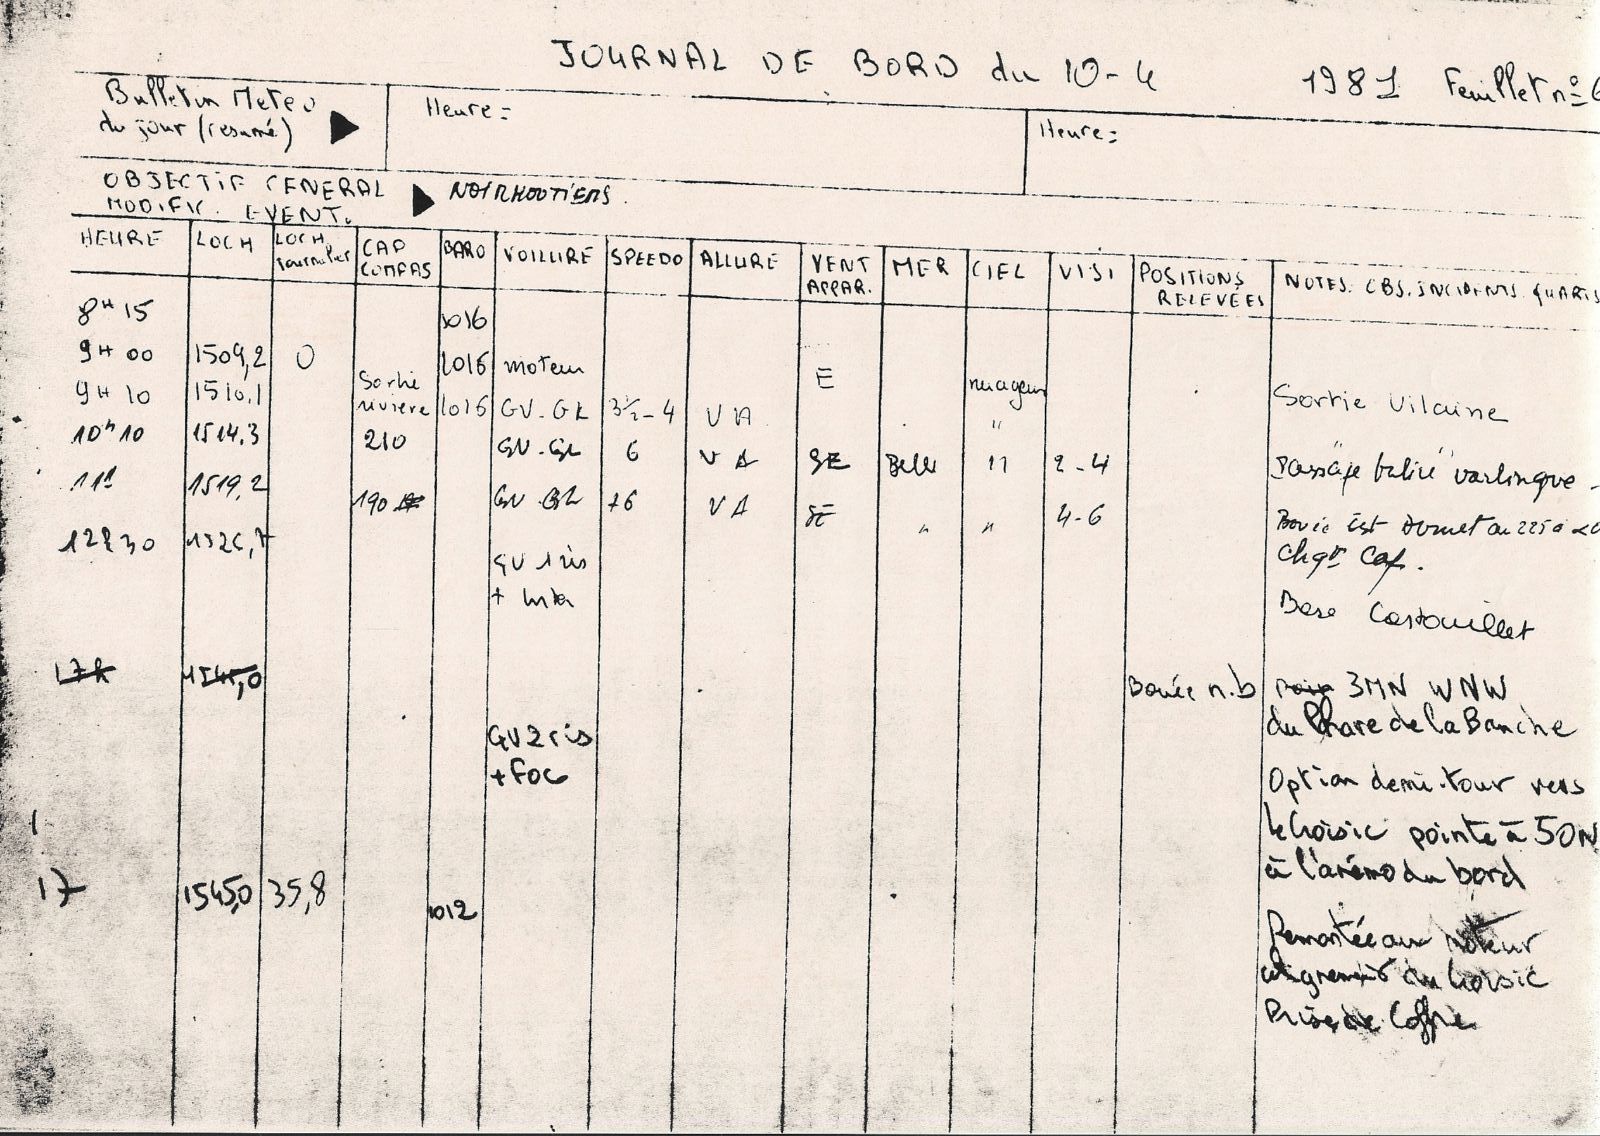 JOURNAL DE BORD du 10-4 1981 Feuillet nº 6
Bulletin Meteo
du jour (resumé)
Heure =
Heure =
OBJECTIF GENERAL
MODIFIC. EVENT.
NOIRMOUTIERS.
HEURE LOCH LOCH journalier CAP COMPAS BARO VOILURE SPEEDO ALLURE VENT APPAR. MER CIEL VISI POSITIONS RELEVEES NOTES. OBS. INCIDENTS. QUARTS
8H15 1016
9H00 1509,2 0 1016 moteur E
9H10 1510,1 Sortie rivière 1016 GV-GL 3½-4 VA nuageux Sortie Vilaine
10h10 1514,3 210 GV-GL 6 VA SE Belle " 2-4 Passage balise "varlingue"
11h 1519,2 190 GV GL +6 VA SE " " 4-6 Bouée Est Dumet au 225 à
Chgt Cap.
12h30 1526,7 GV 1ris
+ Inter
Base Castouillet
17h 1545,0 Bouée n.b 3MN WNW
du Phare de la Banche
GV 2 ris
+ Foc
Option demi-tour vers
le Croisic pointe à 50N
à l'anémo du bord
17 1545,0 35,8 1012
Remontée au moteur
alignement du Croisic
Prise de Coffre